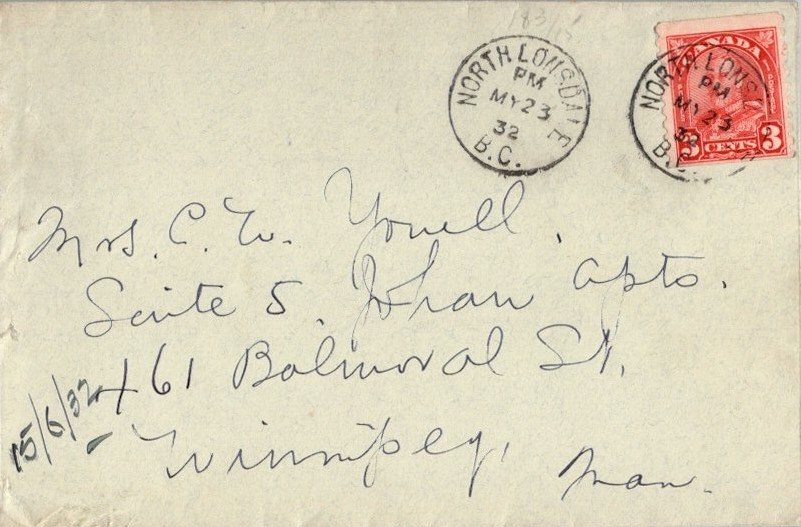 183/15
NORTH LONSDALE
PM
MY 23
32
B.C.
CANADA
3 CENTS 3
NORTH LONS
PM
MY 23
32
B.
Mrs. C. W. Yowell,
Suite 5, Johan Apts.
461 Balmoral St.
Winnipeg,
Man.
15/6/32